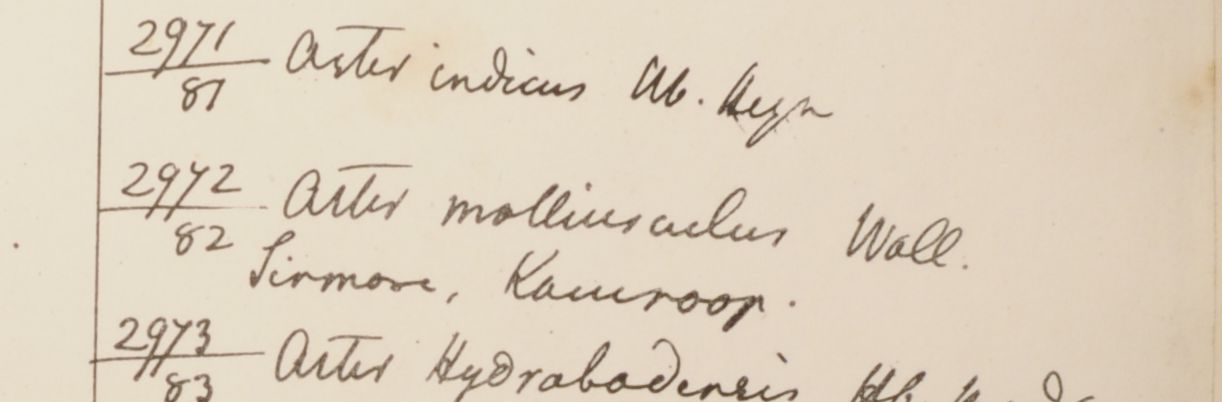 2971 Aster indicus Hb. Heyn
81
2972 Aster molliusculus Wall.
82
Sirmore, Kamroop.
2973 Aster Hydrabadensis Hb.
83